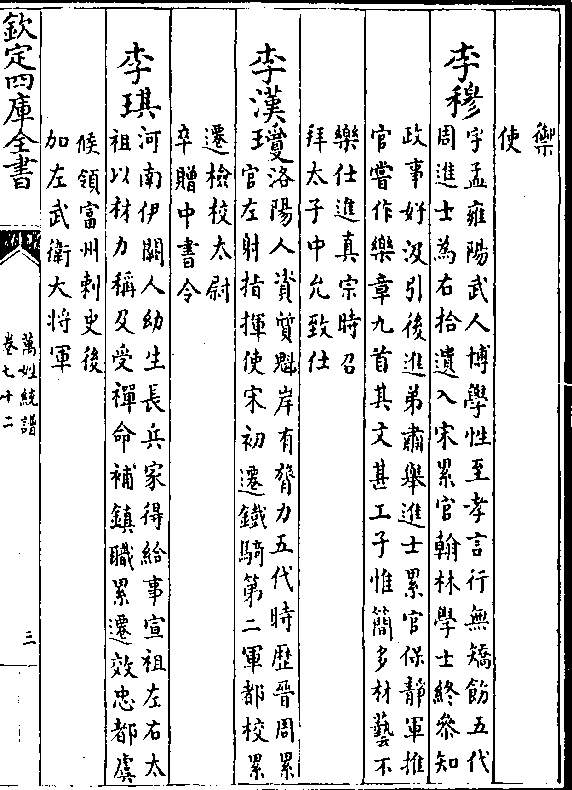 禦
使
李穆
字孟雍陽武人博學性至孝言行無矯飭五代
周進士為右拾遺入宋累官翰林學士終參知
政事好汲引後進弟肅舉進士累官保靜軍推
官嘗作樂章九首其文甚工子惟簡多材藝不
樂仕進真宗時召
拜太子中允致仕
李漢瓊
洛陽人資質魁岸有膂力五代時歷晉周累
官左射指揮使宋初遷鐵騎第二軍都校累
遷檢校太尉
卒贈中書令
李琪
河南伊闕人幼生長兵家得給事宣祖左右太
祖以材力稱及受禪命補鎮職累遷效忠都虞
候領富州刺史後
加左武衛大将軍
欽定四庫全書
萬姓統譜
卷七十二
三